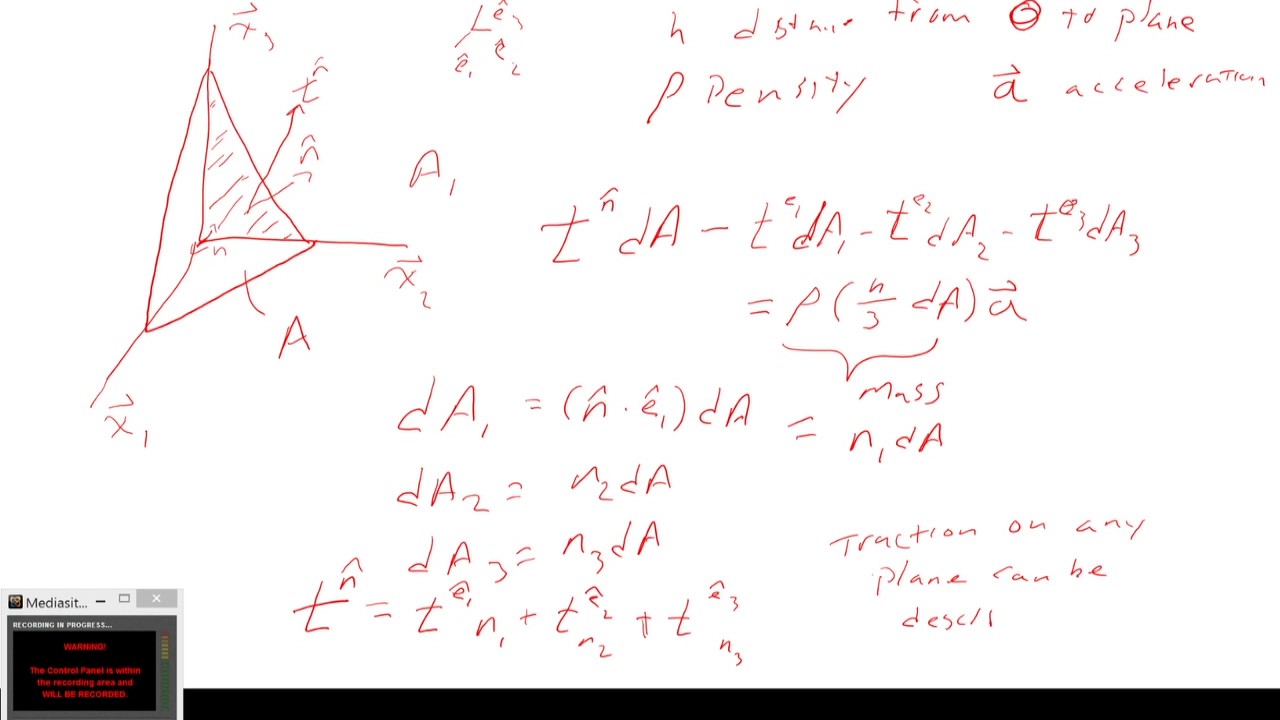 x⃗₃
ê₃
ê₁ ê₂
h distance from O to plane
ρ Density a⃗ acceleration
t^n̂
n̂
A₁
h
x⃗₂
A
x⃗₁
t^n̂ dA - t^e₁ dA₁ - t^e₂ dA₂ - t^e₃ dA₃
= ρ(h/3 dA) a⃗
mass
dA₁ = (n̂ · ê₁) dA = n₁dA
dA₂ = n₂dA
dA₃ = n₃dA
t^n̂ = t^ê₁ n₁ + t^ê₂ n₂ + t^ê₃ n₃
Traction on any
plane can be
Mediasit...
RECORDING IN PROGRESS...
WARNING!
The Control Panel is within
the recording area and
WILL BE RECORDED.